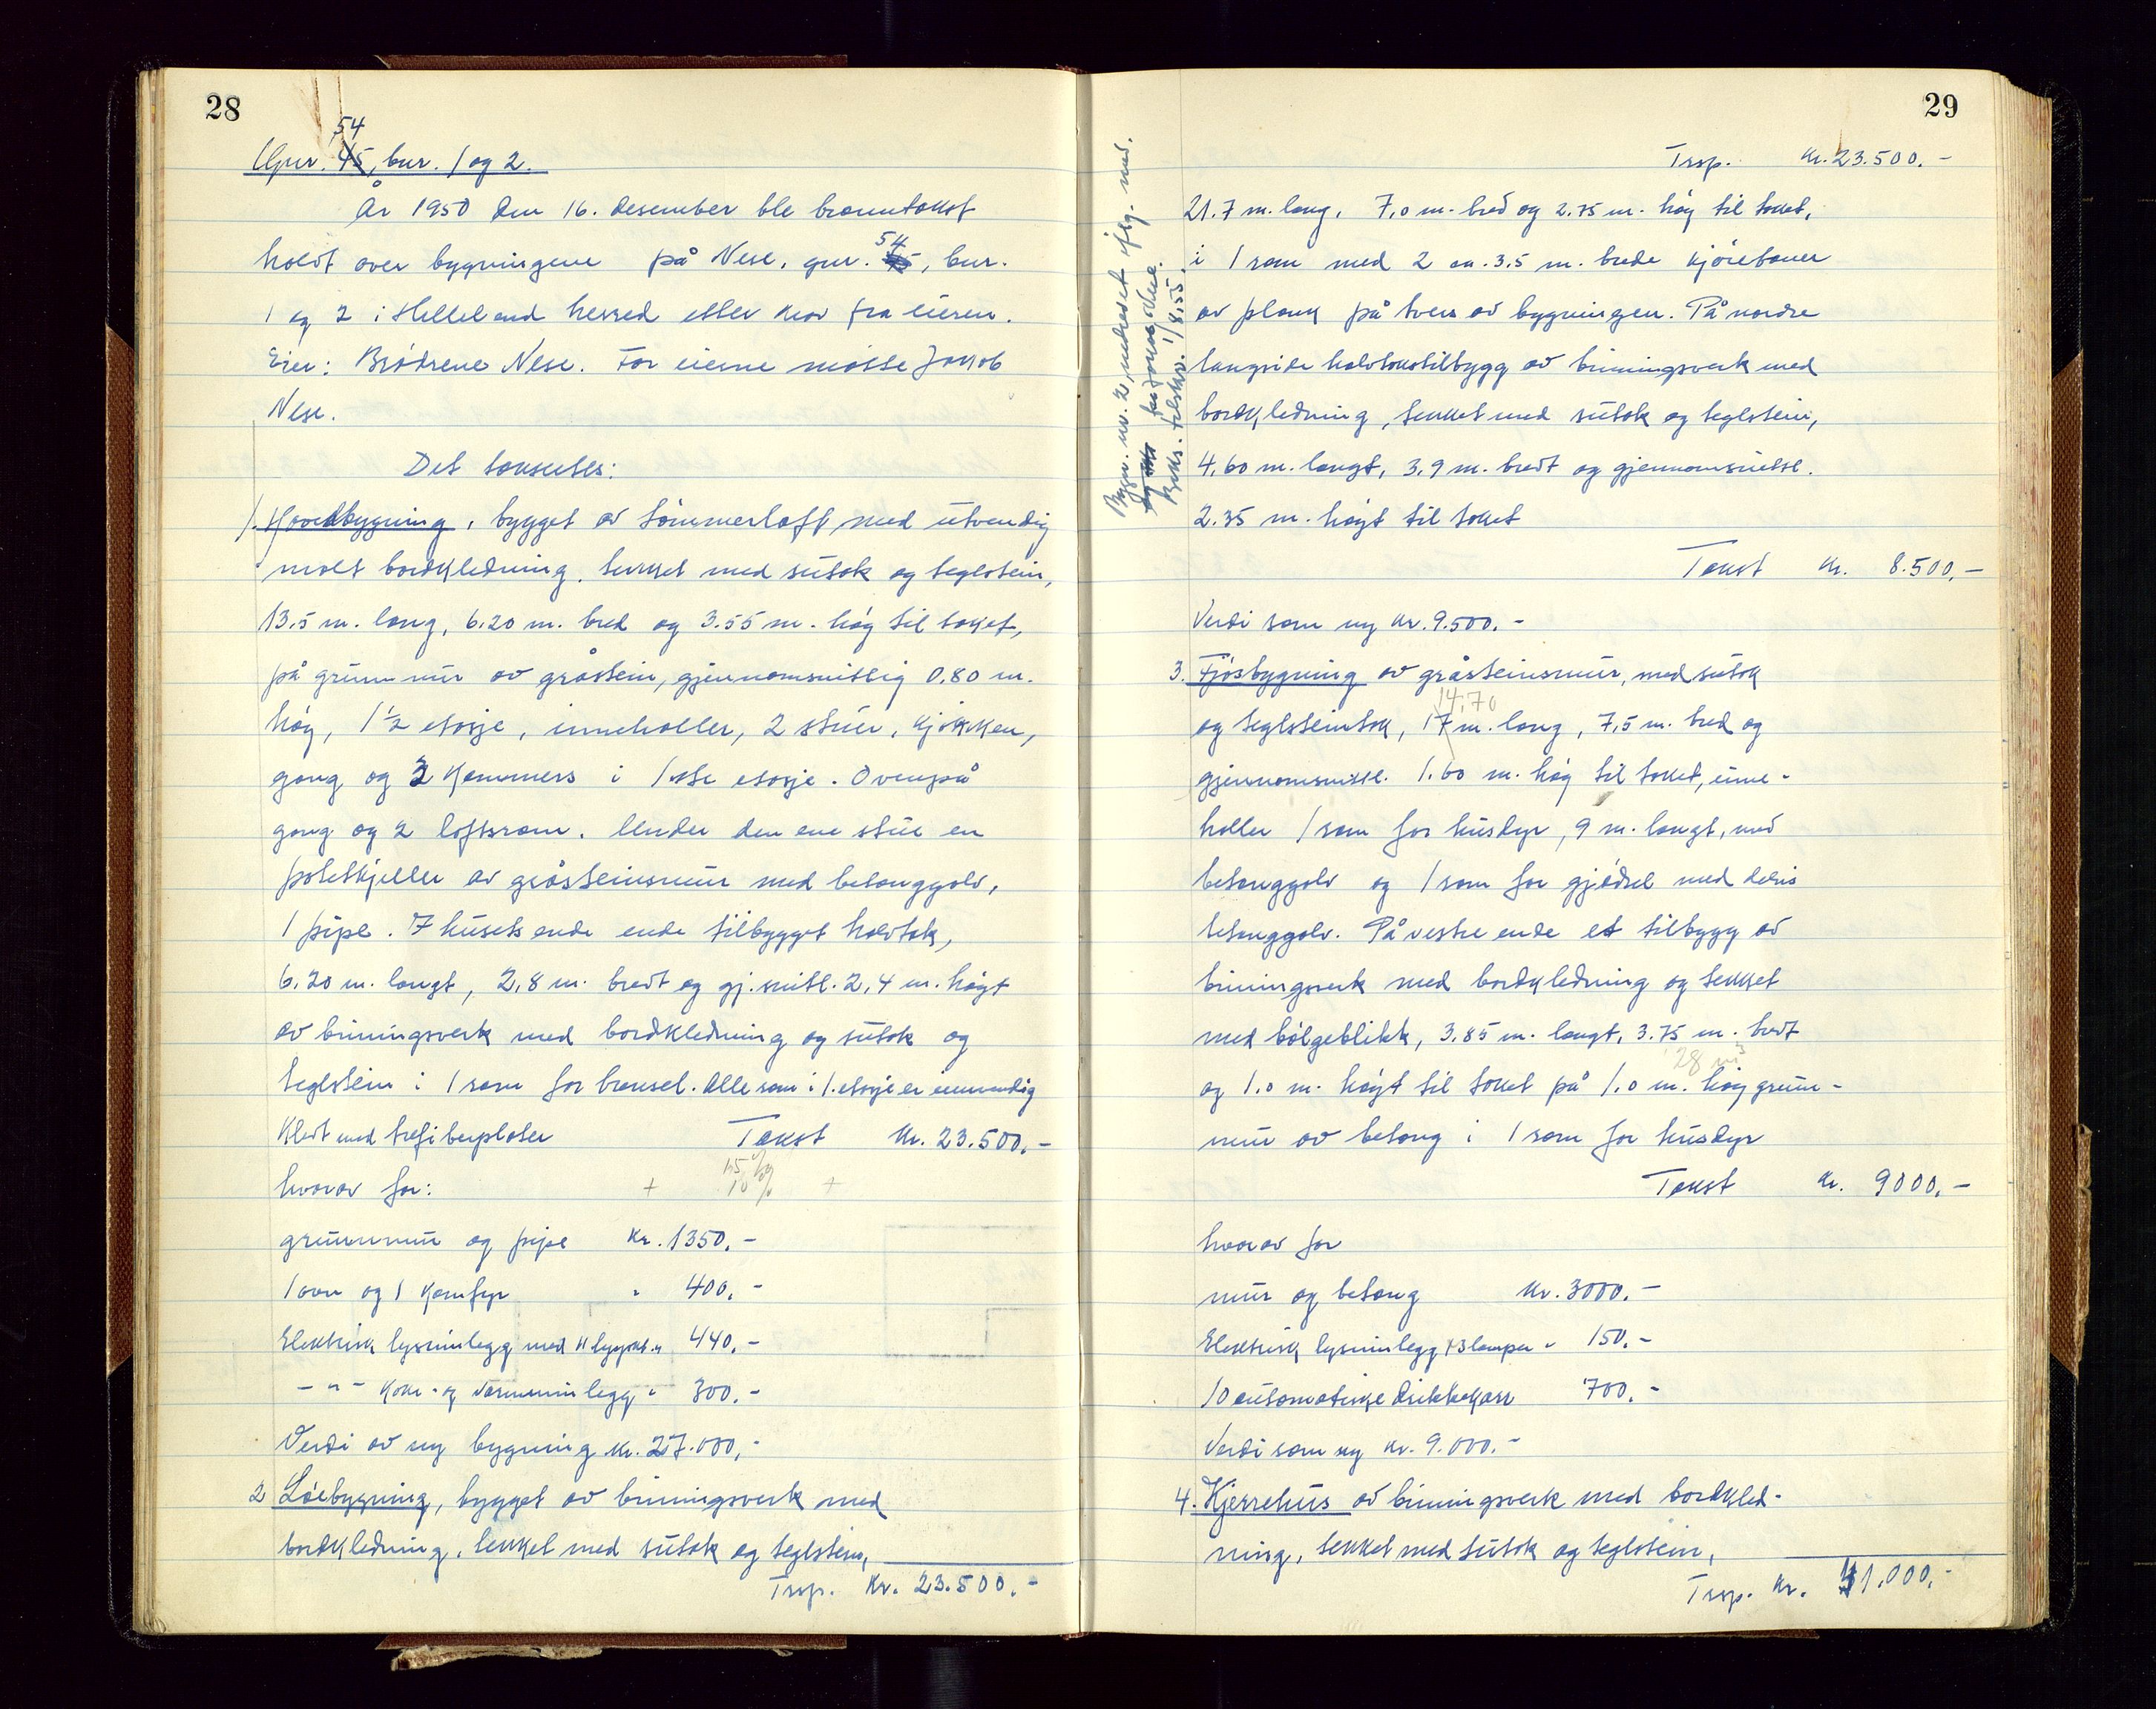 28
54
Gnr. 45, bnr. 1 og 2.
År 1950 den 16. desember ble branntakst
holdt over bygningene på Nese, gnr. 54 45, bnr.
1 og 2 i Helleland herred etter krav fra eieren.
Eier: Brødrene Nese. For eierne møtte Jakob
Nese.
Det takseres:
1. Hovedbygning, bygget av tømmerlaft med utvendig
malt bordkledning, tekket med sutak og teglstein,
13,5 m. lang, 6.20 m. bred og 3.55 m. høg til taket,
på grunnmur av gråstein, gjennomsnittlig 0.80 m.
høg, 1 1/2 etasje, inneholler, 2 stuer, kjøkken,
gang og 2 kammers i 1ste etasje. Ovenpå
gang og 2 loftsrom. Under den ene stue en
potetkjeller av gråsteinsmur med betonggolv,
1 pipe. I husets ende ende tilbygget halvtak,
6.20 m. langt, 2,8 m. bredt og gj.snitl. 2,4 m. høgt
av binningsverk med bordkledning og sutak og
teglstein i 1 rom for brensel. Alle rom i 1. etasje er innvendig
kledt med trefiberplater Takst Kr. 23.500,-
hvorav for: + 15% 10% +
grunnmur og pipe Kr. 1350,-
1 ovn og 1 komfyr " 400,-
Elektrisk lysinnlegg med 11 lyspkt. " 440,-
- " - koke- og varmeinnlegg " 300,-
Verdi av ny bygning Kr. 27.000,-
2 Løebygning, bygget av binningsverk med
bordkledning, tekket med sutak og teglstein,
Trsp. Kr. 23.500,-
29
Bygn. nr. 2, nedrevet iflg. med.
fra Jonas Nese.
Trsp. Kr. 23.500.-
21.7 m. lang, 7,0 m. bred og 2.75 m. høg til taket,
i 1 rom med 2 ca. 3.5 m. brede kjørebaner
av plank på tvers av bygningen. På nordre
langside halvtakstilbygg av binningsverk med
bordkledning, tekket med sutak og teglstein,
4,60 m. langt, 3.9 m. bredt og gjennomsnittl.
2.35 m. høgt til taket
Takst Kr. 8.500,-
Verdi som ny Kr. 9.500.-
3. Fjøsbygning av gråsteinsmur, med sutak
14,70
og teglsteintak, 17 m. lang, 7,5 m. bred og
gjennomsnittl. 1.60 m. høg til taket, inne-
holler 1 rom for husdyr, 9 m. langt, med
betonggolv og 1 rom for gjødsel med delvis
betonggolv. På vestre ende et tilbygg av
binningsverk med bordkledning og tekket
med bølgeblikk, 3.85 m. langt, 3.75 m. bredt
28 m³
og 1.0 m. høgt til taket på 1.0 m. høg grunn-
mur av betong i 1 rom for husdyr
Takst Kr. 9000,-
hvorav for
mur og betong Kr. 3000.-
Elektrisk lysinnlegg 13 lamper " 150.-
10 automatiske drikkekar 700.-
Verdi som ny Kr. 9.000.-
4. Kjerrehus av binningsverk med bordkled-
ning, tekket med sutak og teglstein,
Trsp. Kr. 41.000,-